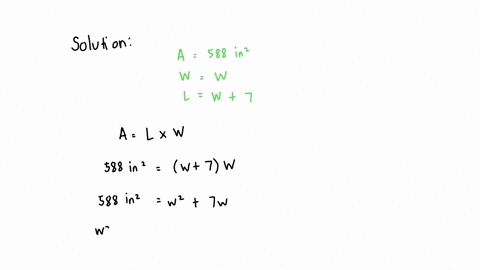 Solution:
A = 588 in²
W = W
L = W + 7
A = L x W
588 in² = (W + 7) W
588 in² = W² + 7W
W²